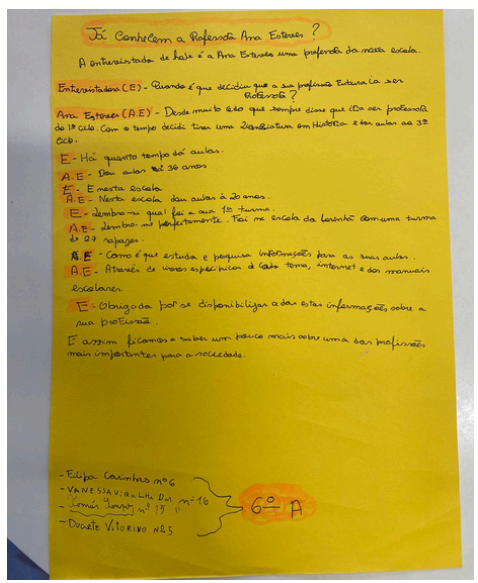 Já Conhecem a Professora Ana Esteves?
A entrevistada de hoje é a Ana Esteves uma professora da nossa escola.
Entrevistadora (E) - Quando é que decidiu que a sua profissão futura ia ser
Professora?
Ana Esteves (A.E) - Desde muito cedo que sempre disse que ia ser professora
do 1º ciclo. Com o tempo decidi tirar uma licenciatura em História e dar aulas ao 3º
ciclo.
E - Há quanto tempo dá aulas.
A.E - Dou aulas há 36 anos
E - E nesta escola
A.E - Nesta escola dou aulas à 20 anos.
E - Lembra-se qual foi a sua 1ª turma.
A.E - Lembro-me perfeitamente. Foi na escola da com uma turma
de 27 rapazes.
E - Como é que estuda e pesquisa informações para as suas aulas.
A.E - Através de livros específicos de cada tema, internet e dos manuais
escolares.
E - Obrigada por se disponibilizar a dar estas informações sobre a
sua profissão.
E assim ficamos a saber um pouco mais sobre uma das profissões
mais importantes para a sociedade.
- Filipa nº 6
- VANESSA nº 16
- Tomás nº 15
- Duarte Vitorino Nº 5
6º A